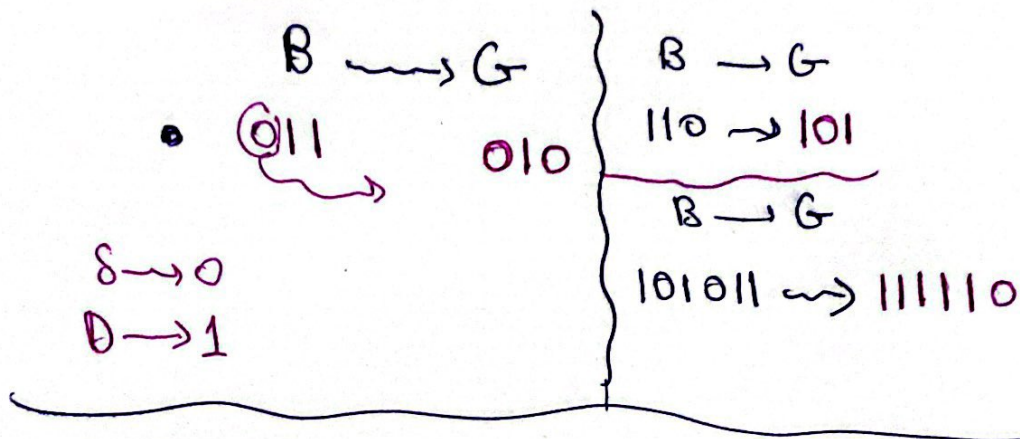 B → G
• 011 → 010
S → 0
D → 1
B → G
110 → 101
B → G
101011 → 111110